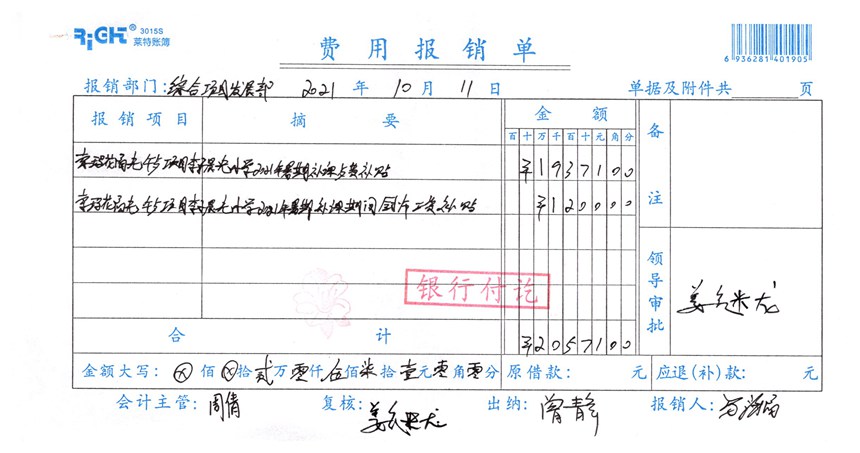 RiGHT® 3015S
莱特账簿
费用报销单
6 936281 401905
报销部门:综合项目发展部 2021 年 10 月 11 日 单据及附件共 页
报销项目 摘要 金额 备注
百十万千百十元角分
项目李 小学2021年暑期补课 费补贴 ¥1937100
项目李 小学2021年暑期补课期间 工资补贴 ¥120000
银行付讫
领导审批
合计 ¥2057100
金额大写: ⊗ 佰 ⊗ 拾 贰 万 零 仟 伍 佰 柒 拾 壹 元 零 角 零 分 原借款: 元 应退(补)款: 元
会计主管: 周倩 复核: 出纳: 曾静 报销人: